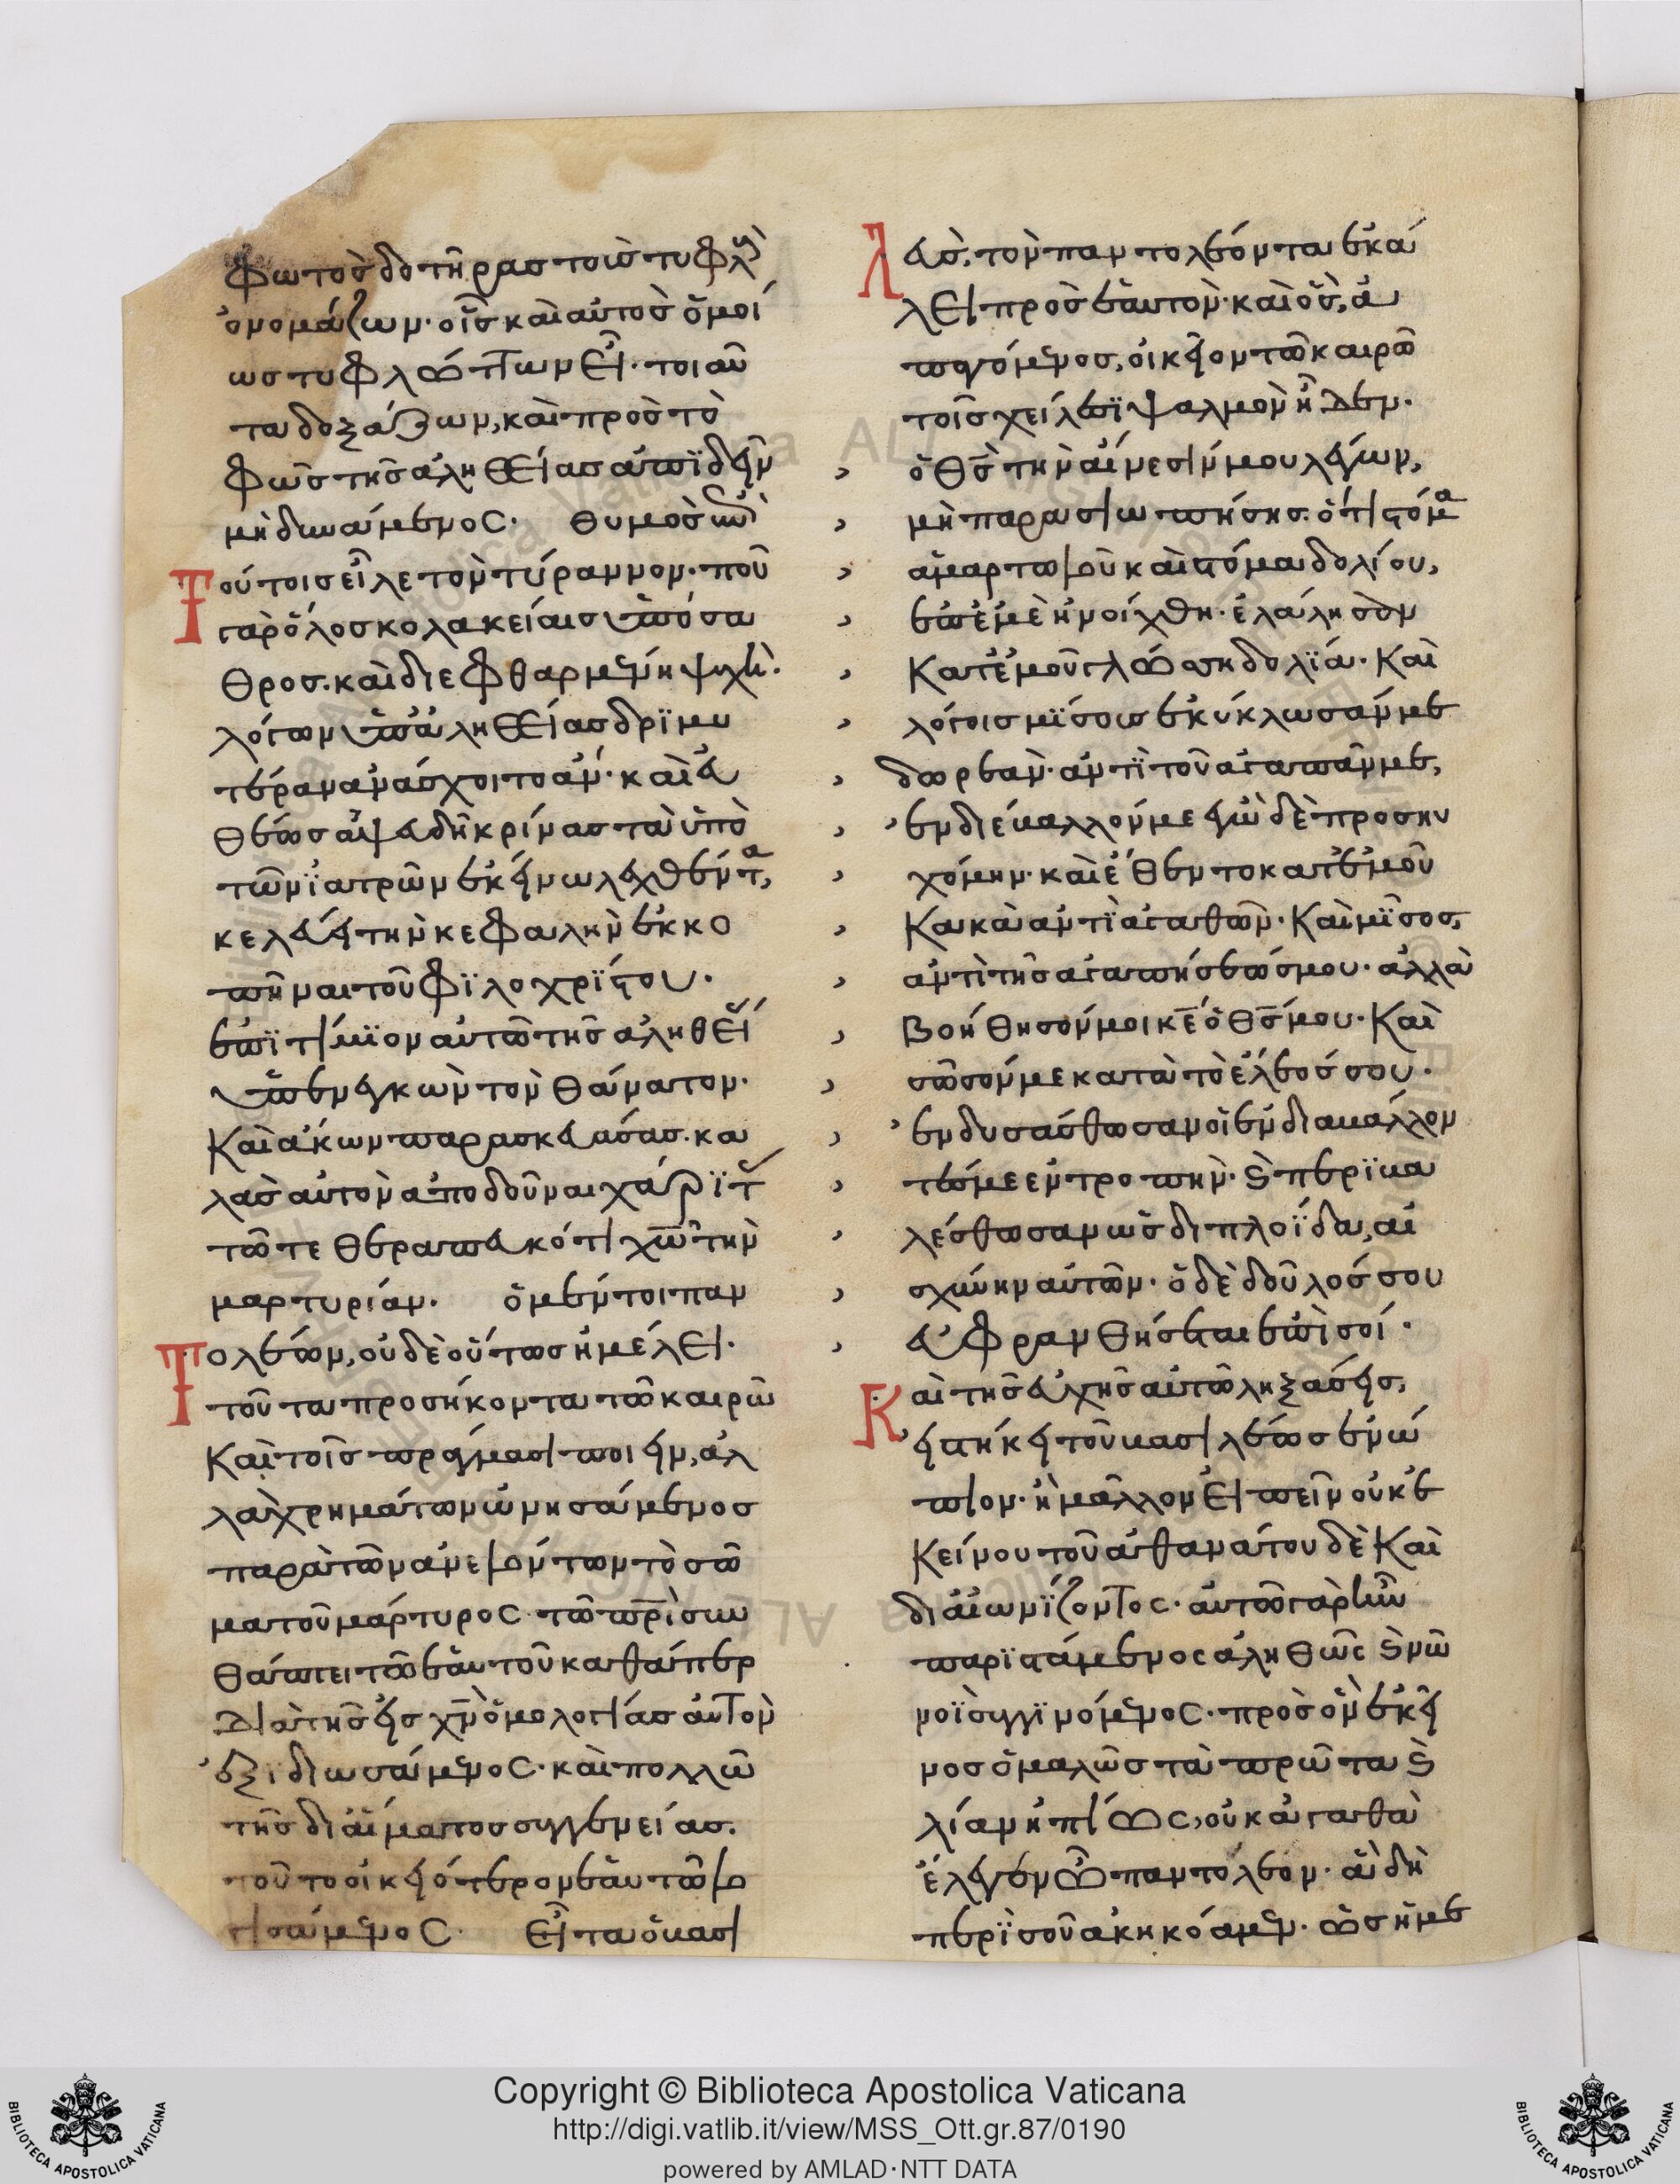 φωτὸς δοτῆρας τοῖς τυφλ
ὀνομάζων· οἷς καὶ αὐτὸς ὁμοί
ως τυφλώττων εἶ· τοιαῦ
τα δοξάζων, καὶ πρὸς τὸ
φῶς τῆς ἀληθείας ἀπιδεῖν
μὴ δυνάμενος· θυμὸς ἐπὶ
τούτοις εἷλε τὸν τύραννον· ποῦ
γὰρ ὅλος κολακείαις ὑπόσα
θρος· καὶ διεφθαρμένη ψυχὴ·
λόγων ὑπ' ἀληθείας δριμυ
τέραν ἀνάσχοιτο ἄν· καὶ εὐ
θέως ἀψευδῆ κρίνας τὰ ὑπὸ
τῶν ἰατρῶν ἐκείνω λεχθέντα,
κελεύει τὴν κεφαλὴν ἐκκο
πῆναι τοῦ φιλοχρίστου·
ἐπιτίμιον αὐτῶ τῆς ἀληθεί
ὑπενεγκὼν τὸν θάνατον·
καὶ ἄκων παρασκευάσας· κα
λὰς αὐτὸν ἀποδοῦναι χάριτ
τῶ τεθεραπευκότι χω τὴν
μαρτυρίαν· ὁ μέντοι παν
τολέων, οὐδὲ οὕτως ἠμέλει·
τοῦ τὰ προσήκοντα τῶ καιρῶ
καὶ τοῖς πράγμασι ποιεῖν, ἀλ
λὰ χρημάτων ὠνησάμενος
παρὰ τῶν ἀνελόντων τὸ σῶ
μα τοῦ μάρτυρος· τῶ πρὶ συν
θάπτει τῶ ἑαυτοῦ καθάπερ
διὰ τῆς εἰς χν ὁμολογίας αὐτὸν
ἐξιδιωσάμενος· καὶ πολλῶ
τῆς δι' αἵματος συγγενείας·
τοῦτο οἰκειότερον ἑαυτῶ
τισάμενος· εἶτα ὁ βασι
λεὺς, τὸν παντολέοντα ἐκά
λει πρὸς ἑαυτὸν· καὶ ὃς, ἀ
παγόμενος, οἰκεῖον τῶ καιρῶ
τοῖς χείλεσι ψαλμὸν ἦδεν·
ὁ θς τὴν αἴνεσίν μου λέγων,
μὴ παρασιωπήσης· ὅτι στόμα
ἁμαρτωλοῦ καὶ στόμα δολίου,
ἐπ' ἐμὲ ἠνοίχθη· ἐλάλησαν
κατ' ἐμοῦ γλώσση δολία· καὶ
λόγοις μίσους ἐκύκλωσάν με
δωρεὰν· ἀντὶ τοῦ ἀγαπᾶν με,
ἐνδιέβαλλόν με ἐγὼ δὲ προσηυ
χόμην· καὶ ἔθεντο κατ' ἐμοῦ
κακὰ ἀντὶ ἀγαθῶν· καὶ μῖσος,
ἀντὶ τῆς ἀγαπήσεώς μου· ἀλλὰ
βοήθησόν μοι κε ὁ θς μου· καὶ
σῶσόν με κατὰ τὸ ἔλεός σου·
ἐνδυσάσθωσαν οἱ ἐνδιαβάλλον
τές με ἐντροπὴν· καὶ περιβα
λέσθωσαν ὡς διπλοΐδα, αἰ
σχύνην αὐτῶν· ὁ δὲ δοῦλός σου
εὐφρανθήσεται ἐπὶ σοί·
καὶ τῆς εὐχῆς αὐτῶ ληξάσης,
εἱστήκει τοῦ βασιλέως ἐνώ
πιον· ἢ μᾶλλον εἰπεῖν οὐκ ἐ
κείνου τοῦ ἀθανάτου δὲ καὶ
διαιωνίζοντος· αὐτῶ γὰρ ἦν
παριστάμενος ἀληθῶς καὶ νῶ
νοῒ συγγινόμενος· πρὸς ὃν ἐκεῖ
νος ὁμαλῶς τὰ πρῶτα καὶ
λίαν ἠπίως, οὐκ ἀγαθὰ
ἔλεγεν ὦ παντόλεον· ἃ δὴ
περὶ σοῦ ἀκηκόαμεν· ὡς ἡμε
Copyright © Biblioteca Apostolica Vaticana
http://digi.vatlib.it/view/MSS_Ott.gr.87/0190
powered by AMLAD·NTT DATA
BIBLIOTECA APOSTOLICA VATICANA
BIBLIOTECA APOSTOLICA VATICANA